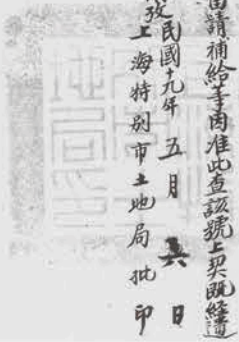 由請補給等因准此查該號上契既經遺
發
民國十九年 五月 日
上海特別市土地局批印